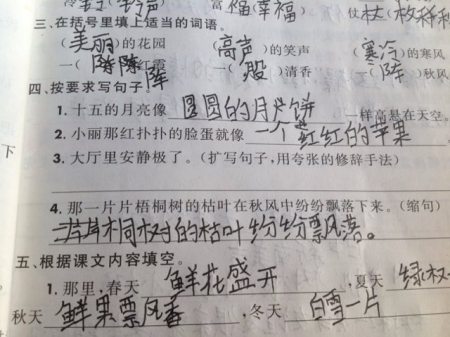 富(幸福) 仗杖(
三、在括号里填上适当的词语。
(美丽)的花园 (高声)的笑声 (寒冷)的寒风
一(阵)红霞 一(股)清香 一(阵)秋风
四、按要求写句子。
1. 十五的月亮像 圆圆的月饼 一样高悬在天空。
2. 小丽那红扑扑的脸蛋就像 一个红红的苹果
3. 大厅里安静极了。(扩写句子,用夸张的修辞手法)
下
4. 那一片片梧桐树的枯叶在秋风中纷纷飘落下来。(缩句)
桐树的枯叶纷纷飘落。
五、根据课文内容填空。
1. 那里,春天 鲜花盛开 ,夏天 绿
秋天 鲜果飘香 ,冬天 白雪一片